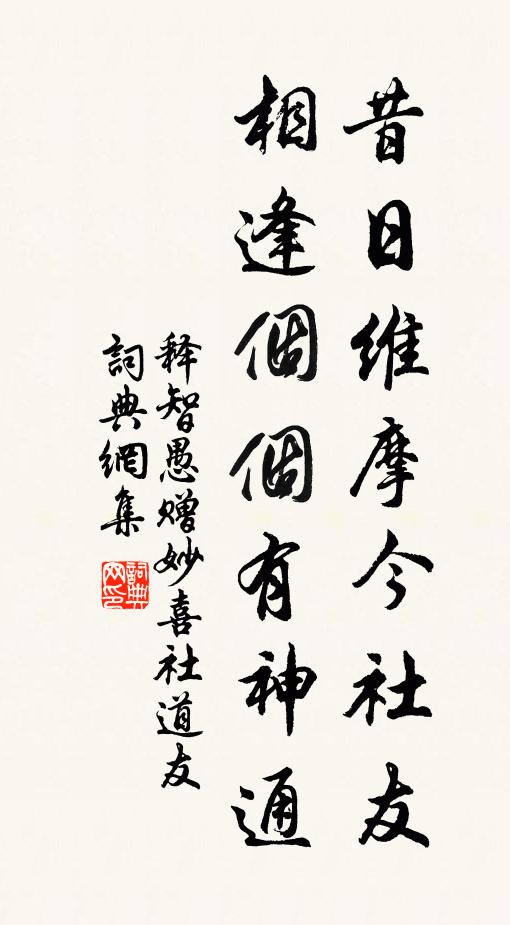 昔日维摩今社友
相逢個個有神通
释智愚赠妙喜社道友
詞典網集
詞典
网印